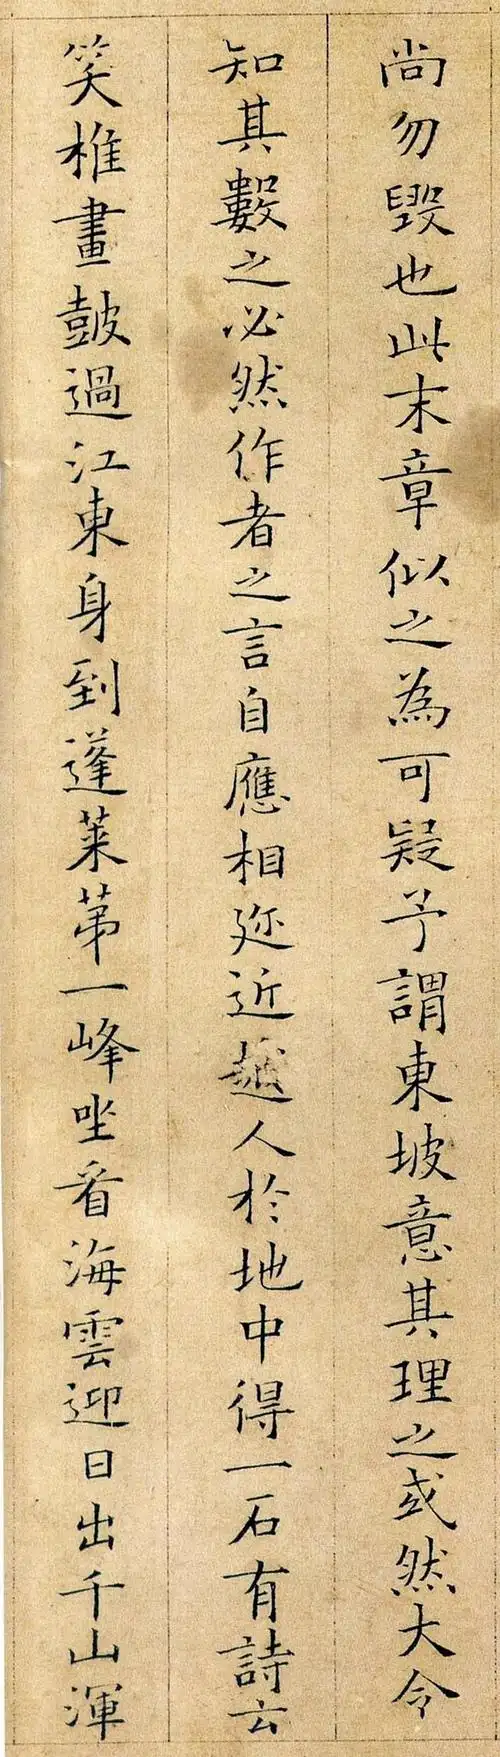 尚勿毀也此末章似之為可疑予謂東坡意其理之或然大令
知其數之必然作者之言自應相迩近越人於地中得一石有詩云
笑椎畫鼓過江東身到蓬萊第一峰坐看海雲迎日出千山渾